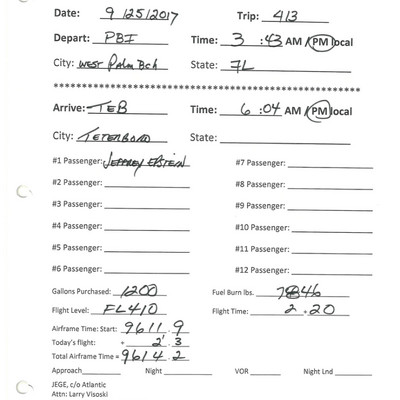 Date: 9/25/2017 Trip: 413
Depart: PBI Time: 3:43 AM / PM local
City: West Palm Bch State: FL
********************************************************
Arrive: TEB Time: 6:04 AM / PM local
City: TETERBORO State:
#1 Passenger: JEFFREY EPSTEIN #7 Passenger:
#2 Passenger: #8 Passenger:
#3 Passenger: #9 Passenger:
#4 Passenger: #10 Passenger:
#5 Passenger: #11 Passenger:
#6 Passenger: #12 Passenger:
Gallons Purchased: 1200 Fuel Burn lbs. 7846
Flight Level: FL410 Flight Time: 2.20
Airframe Time: Start: 9611.9
Today's flight: + 2.3
Total Airframe Time = 9614.2
Approach Night VOR Night Lnd
JEGE, c/o Atlantic
Attn: Larry Visoski